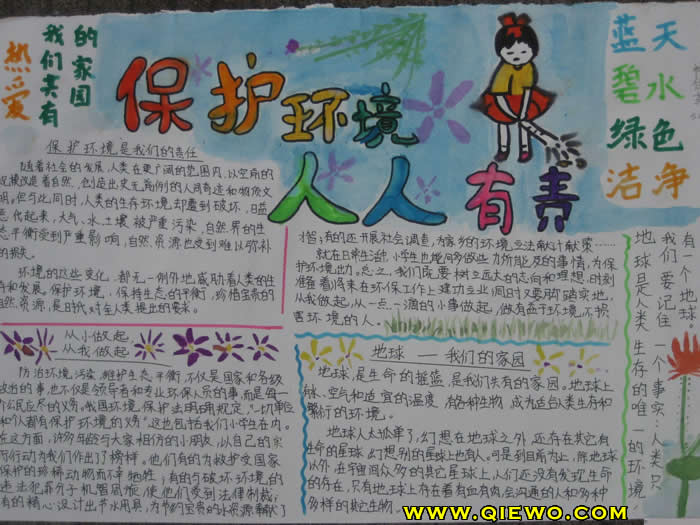 热爱
我们共有
的家园
保护环境
人人有责
蓝天
碧水
绿色
洁净
保护环境是我们的责任
随着社会的发展,人类在更广阔的范围内,以空前的
规模改造着自然,创造出史无前例的人间奇迹和物质文
明,但与此同时,人类的生存环境却遭到破坏,日益
恶化起来,大气、水、土壤被严重污染,自然界的生
态平衡受到严重影响,自然资源也受到难以弥补
的损失。
环境的这些变化,都无一例外地威胁着人类的生
存和发展。保护环境,保持生态的平衡,珍惜宝贵的
自然资源,是时代对全人类提出的要求。
从小做起
从我做起
防治环境污染,维护生态平衡,不仅是国家和各级
政治的事,也不仅是领导者和专业环保人员的事,而是每一
个公民应尽的义务。我国环境保护法明确规定,“一切单位
和个人都有保护环境的义务。”这也包括我们小学生在内。
在这方面,许多年龄与大家相仿的小朋友,以自己的实
际行动为我们作出了榜样。他们有的为救护受国家
保护的珍稀动物而不幸牺牲;有的与破坏环境的
违法犯罪分子机智周旋,使他们受到法律制裁;
有的精心设计出节水用具,为节约宝贵的水资源贡献了
才智;有的还开展社会调查,为家乡的环境立法献计献策……
就在日常生活中,小学生也能同多做些力所能及的事情,为保
护环境出力。总之,我们既要树立远大的志向和理想,时刻
准备着将来在环保工作上建功立业;同时又要脚踏实地,
从我做起,从一点一滴的小事做起,做有益于环境、不损
害环境的人。
地球——我们的家园
地球,是生命的摇篮,是我们共有的家园。地球上
水、空气和适宜的温度,有各种生物,成为适合人类生存和
繁衍的环境。
地球人太孤单了,幻想在地球之外,还存在其它有
生命的星球,幻想别的星球上也有人。可是,到目前为止,除地球
以外,在宇宙间众多的其它星球上,人们还没有发现生命
的存在,只有地球上存在着有血有肉、会沟通的人和多种
多样的其它生物。
有一个地球
我们要记住一个事实:人类只
地球是人类生存的唯一的环境
WWW.QIEWO.COM